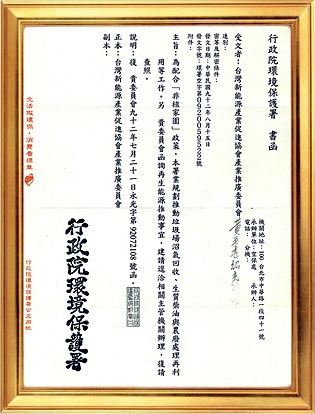 行政院環境保護署　書函
機關地址：100 台北市中華路一段四十一號
承辦單位：空保處　承辦人：
電話：　分機：
受文者：台灣新能源產業促進協會產業推廣委員會
速別：
密等及解密條件：
發文日期：中華民國九十二年八月十五日
發文字號：環署空字第0920059522號
附件：
主旨：為配合「非核家園」政策，本署業規劃推動垃圾場沼氣回收、生質柴油與農廢處理再利
用等工作。另　貴委員會函詢再生能源推動事宜，建請逕洽相關主管機關辦理，復請
查照。
說明：復　貴委員會九十二年七月二十一日永光字第92072108號函。
正本：台灣新能源產業促進協會產業推廣委員會
副本：
行政院環境保護署
生活做環保，消費看標章
行政院環境保護署公文用紙